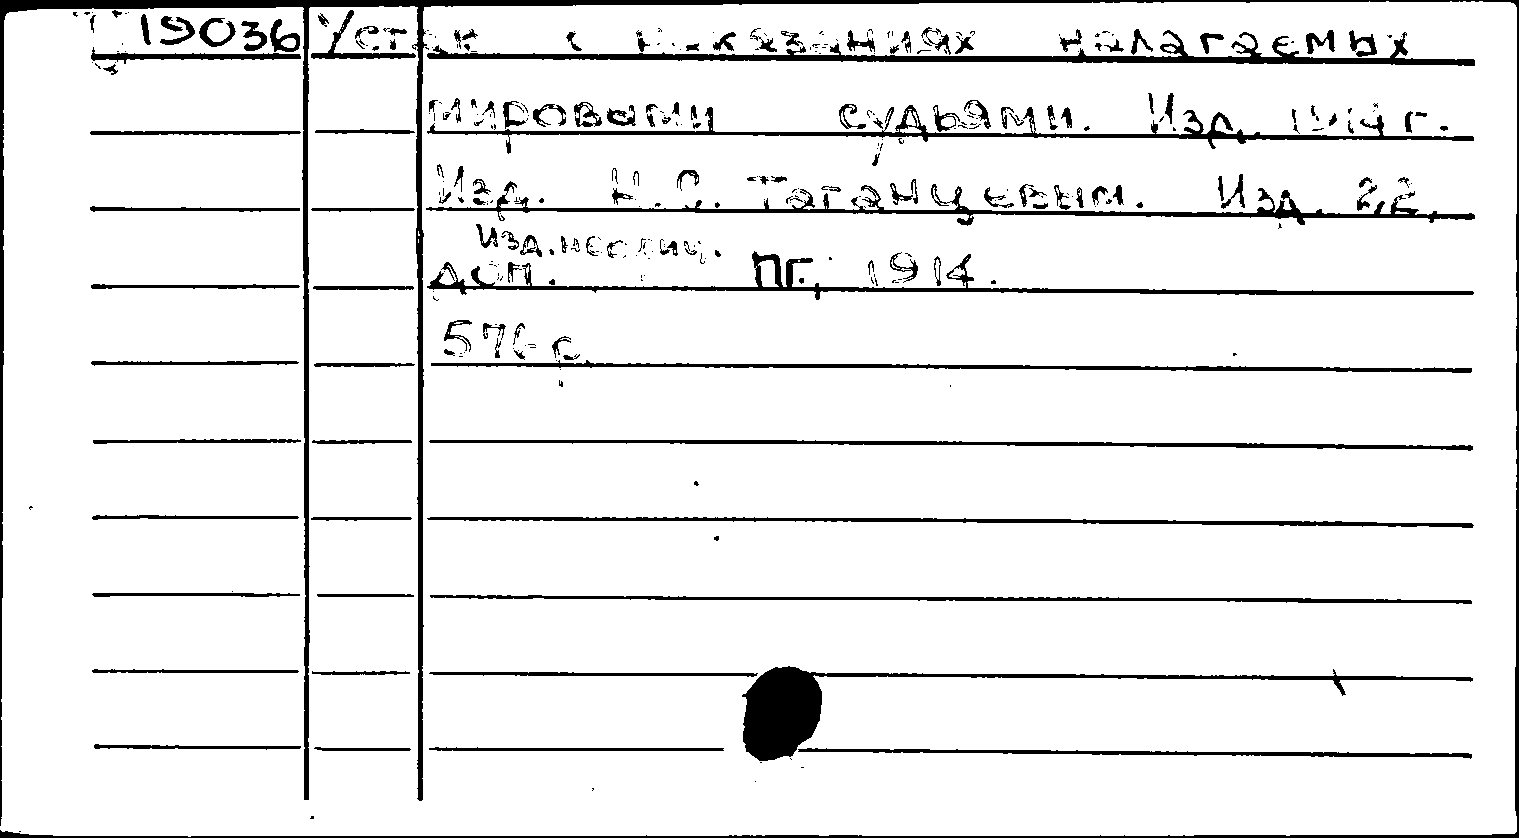 19036 Устав о наказаниях налагаемых
мировыми судьями. Изд. 1914 г.
Изд. Н.С. Таганцевым. Изд. 22,
изд. неофиц.
доп. Пг., 1914.
576 с.